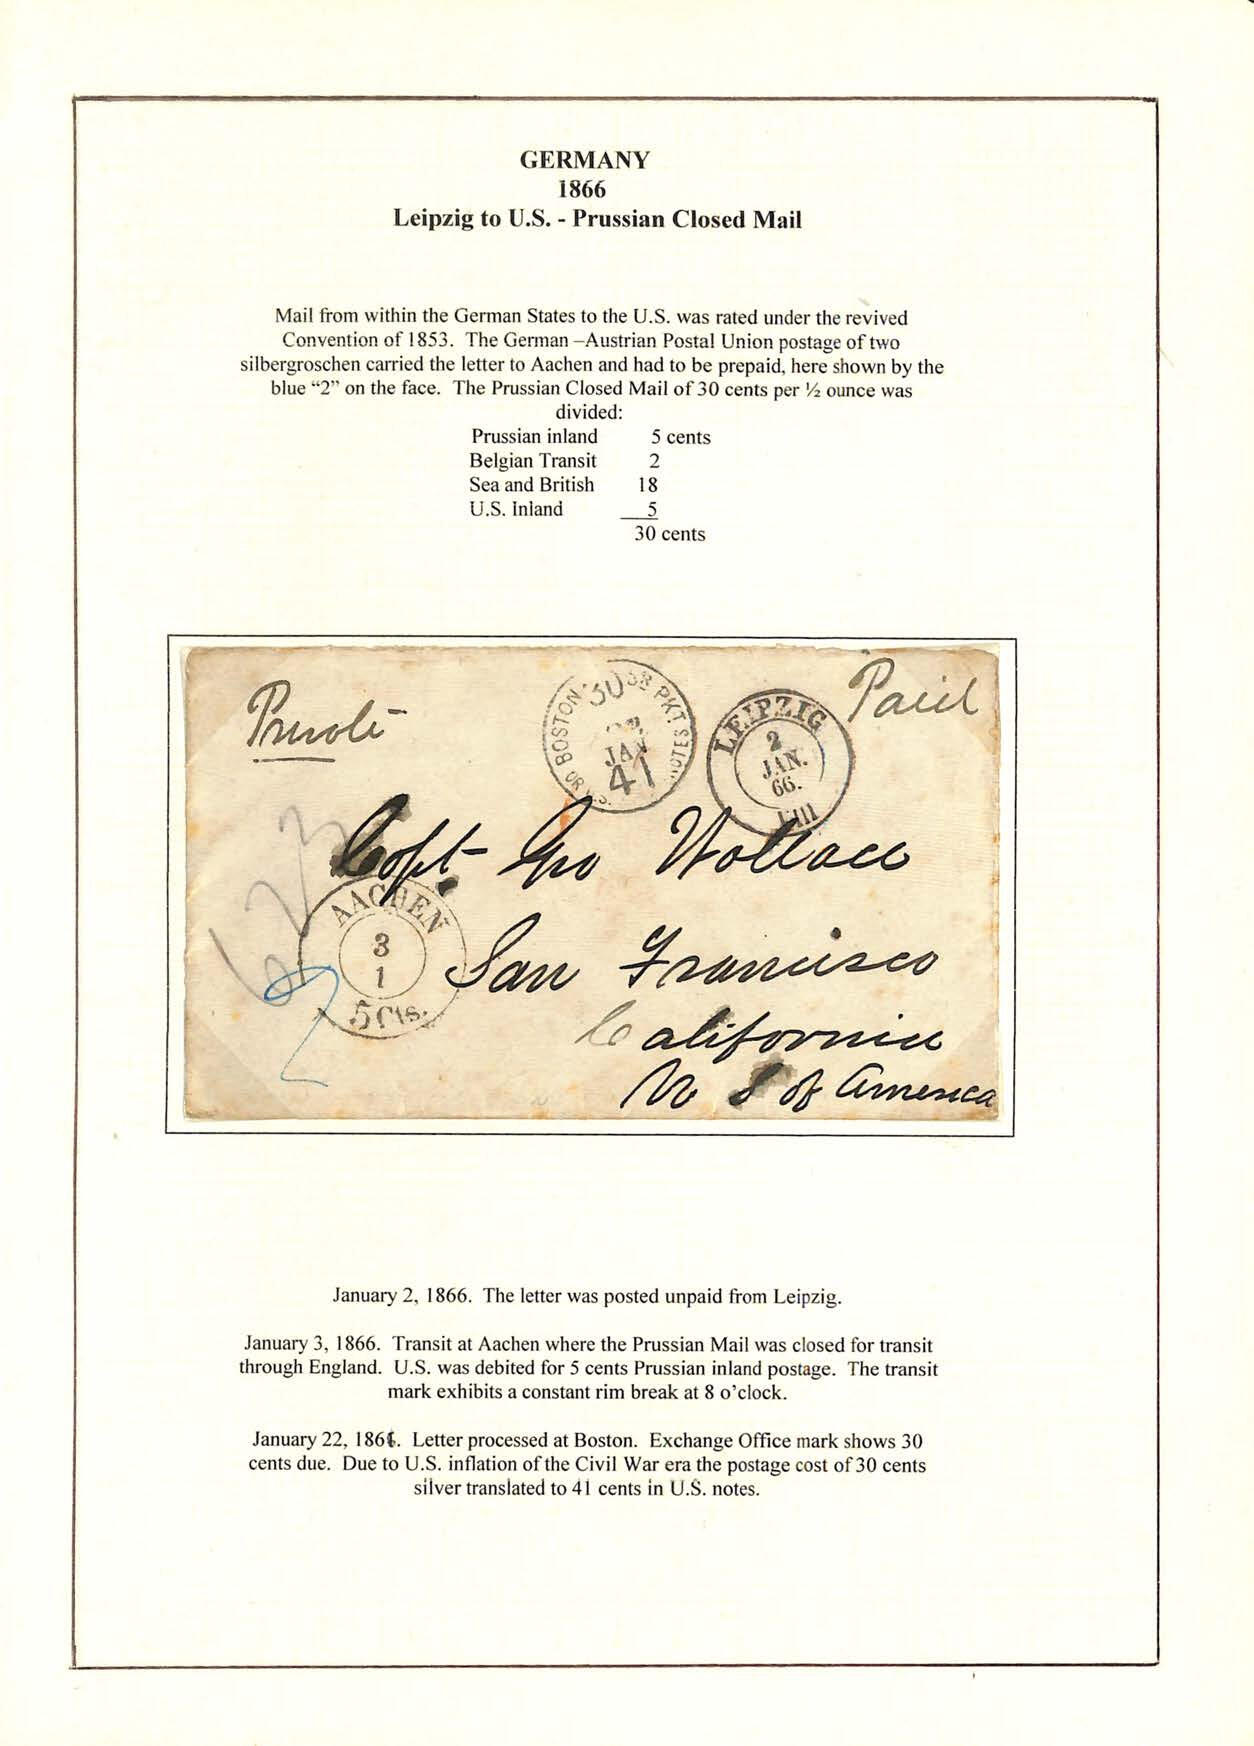 GERMANY
1866
Leipzig to U.S. - Prussian Closed Mail
Mail from within the German States to the U.S. was rated under the revived
Convention of 1853. The German –Austrian Postal Union postage of two
silbergroschen carried the letter to Aachen and had to be prepaid, here shown by the
blue “2” on the face. The Prussian Closed Mail of 30 cents per ½ ounce was
divided:
Prussian inland 5 cents
Belgian Transit 2
Sea and British 18
U.S. Inland 5
30 cents
Private
Paid
BOSTON BR PKT
30
JAN
41
OR U.S. NOTES
LEIPZIG
2
JAN.
66.
Capt Geo Wallace
AACHEN
3
1
5 Cts.
San Francisco
California
U S of America
623
2
January 2, 1866. The letter was posted unpaid from Leipzig.
January 3, 1866. Transit at Aachen where the Prussian Mail was closed for transit
through England. U.S. was debited for 5 cents Prussian inland postage. The transit
mark exhibits a constant rim break at 8 o’clock.
January 22, 1866. Letter processed at Boston. Exchange Office mark shows 30
cents due. Due to U.S. inflation of the Civil War era the postage cost of 30 cents
silver translated to 41 cents in U.S. notes.